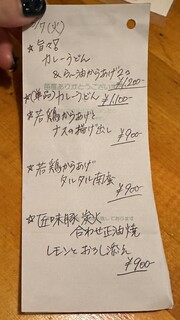 /7(火)
☆ 旨々
カレーうどん
&ら〜油からあげ2コ
¥1200-
☆(単品)カレーうどん
¥1,100-
☆ 若鶏からあげと
ナスの揚げ出し
¥900-
☆ 若鶏からあげ
タルタル南蛮
¥900-
☆ 匠味豚炭火
合わせ正油焼
レモンとおろし添え
¥900-